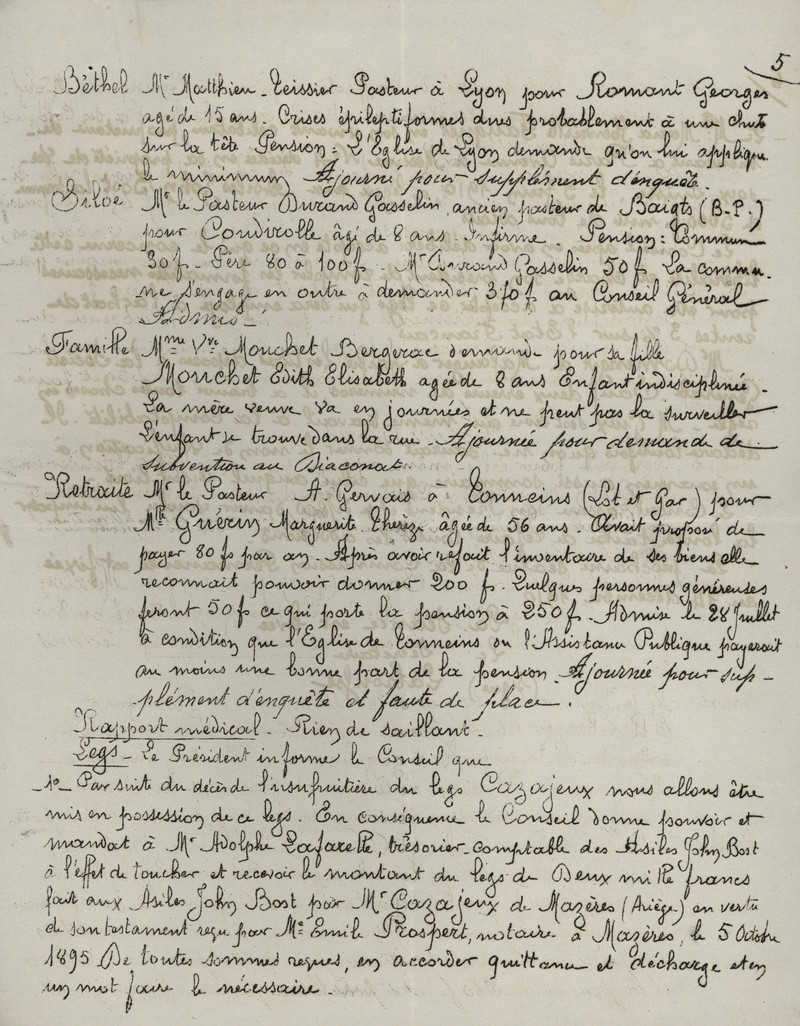 5
Béthel Mr Matthieu-Teissier Pasteur à Lyon pour Romant Georges
agé de 15 ans. Crises épileptiformes dues probablement à une chute
sur la tête Pension: L'Eglise de Lyon demande qu'on lui applique
le minimum Ajourné pour supplément d'enquête.
Siloé Mr le Pasteur Durand Gasselin, ancien pasteur de Baigts (B.P.)
pour Condirolle âgé de 8 ans. Infirme. Pension: Commune
30f. Père 80 à 100f. Mr Durand Gasselin 50f La commu-
ne s'engage en outre à demander 370f au Conseil Général
Admis.
Famille Mme Vve Mouchet Bergerac demande pour sa fille
Mouchet Edith Elisabeth agée de 8 ans Enfant indisciplinée.
La mère veuve va en journées et ne peut pas la surveiller
L'enfant se trouve dans la rue. Ajournée pour demande de
subvention au Diaconat.
Retraite Mr le Pasteur A. Gervais à Tonneins (Lot et Gar) pour
Mlle Guérin Marguerite Thérèze âgée de 56 ans. Avait proposé de
payer 80 f par an. Après avoir refait l'inventaire de ses biens elle
reconnait pouvoir donner 200 f. Quelques personnes généreuses
feront 50f ce qui porte la pension à 250f. Admise le 28 Juillet
à condition que l'Eglise de Tonneins ou l'Assistance Publique payerait
au moins une bonne part de la pension. Ajournée pour sup-
plément d'enquête et faute de place.
Rapport médical. Rien de saillant.
Legs. Le Président informe le Conseil que
1o Par suite du décès de l'usufruitière du legs Cazajeux nous allons être
mis en possession de ce legs. En conséquence le Conseil donne pouvoir et
mandat à Mr Adolphe Lafarelle, trésorier-comptable des Asiles John Bost
à l'effet de toucher et recevoir le montant du legs de Deux mille francs
fait aux Asiles John Bost par Mr Cazajeux de Mazères (Ariège) en vertu
de son testament reçu par Me Emile Prospert, notaire à Mazères, le 5 Octobre
1895 De toutes sommes reçues, en accorder quittance et décharge et en
un mot faire le nécessaire.